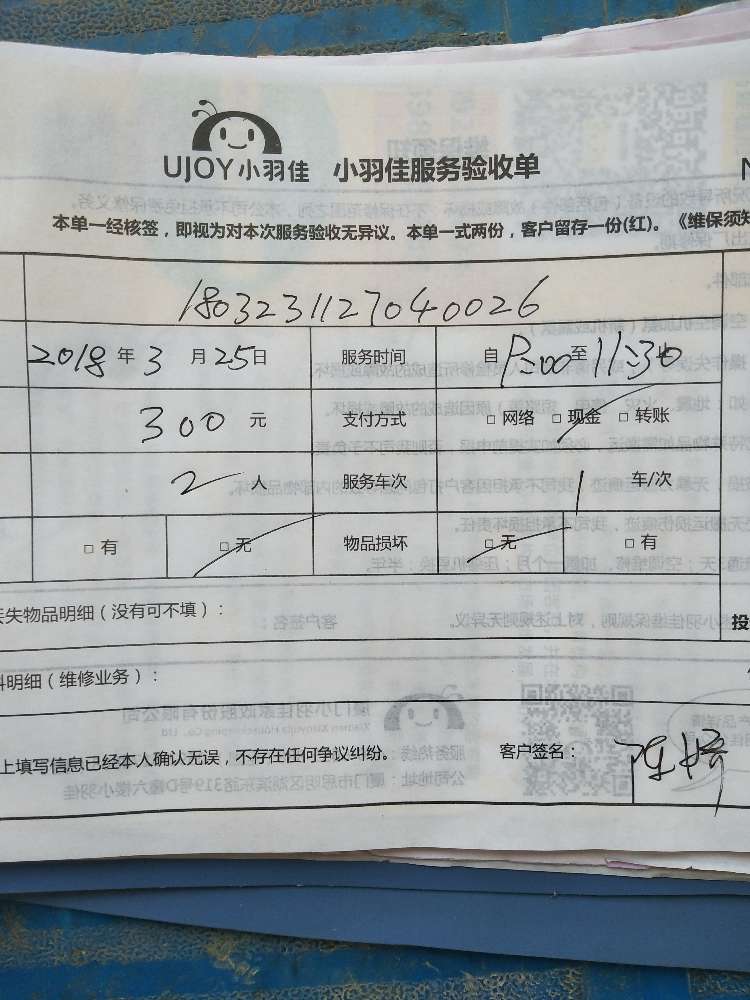 UJOY小羽佳 小羽佳服务验收单
本单一经核签，即视为对本次服务验收无异议。本单一式两份，客户留存一份(红)。《维保须知
1803231127040026
2018年3月25日 服务时间 自 至11:30
300元 支付方式 □网络 □现金 □转账
2人 服务车次 1车/次
□有 □无 物品损坏 □无 □有
失物品明细（没有可不填）：
投
明细（维修业务）：
上填写信息已经本人确认无误，不存在任何争议纠纷。 客户签名： 陈婷